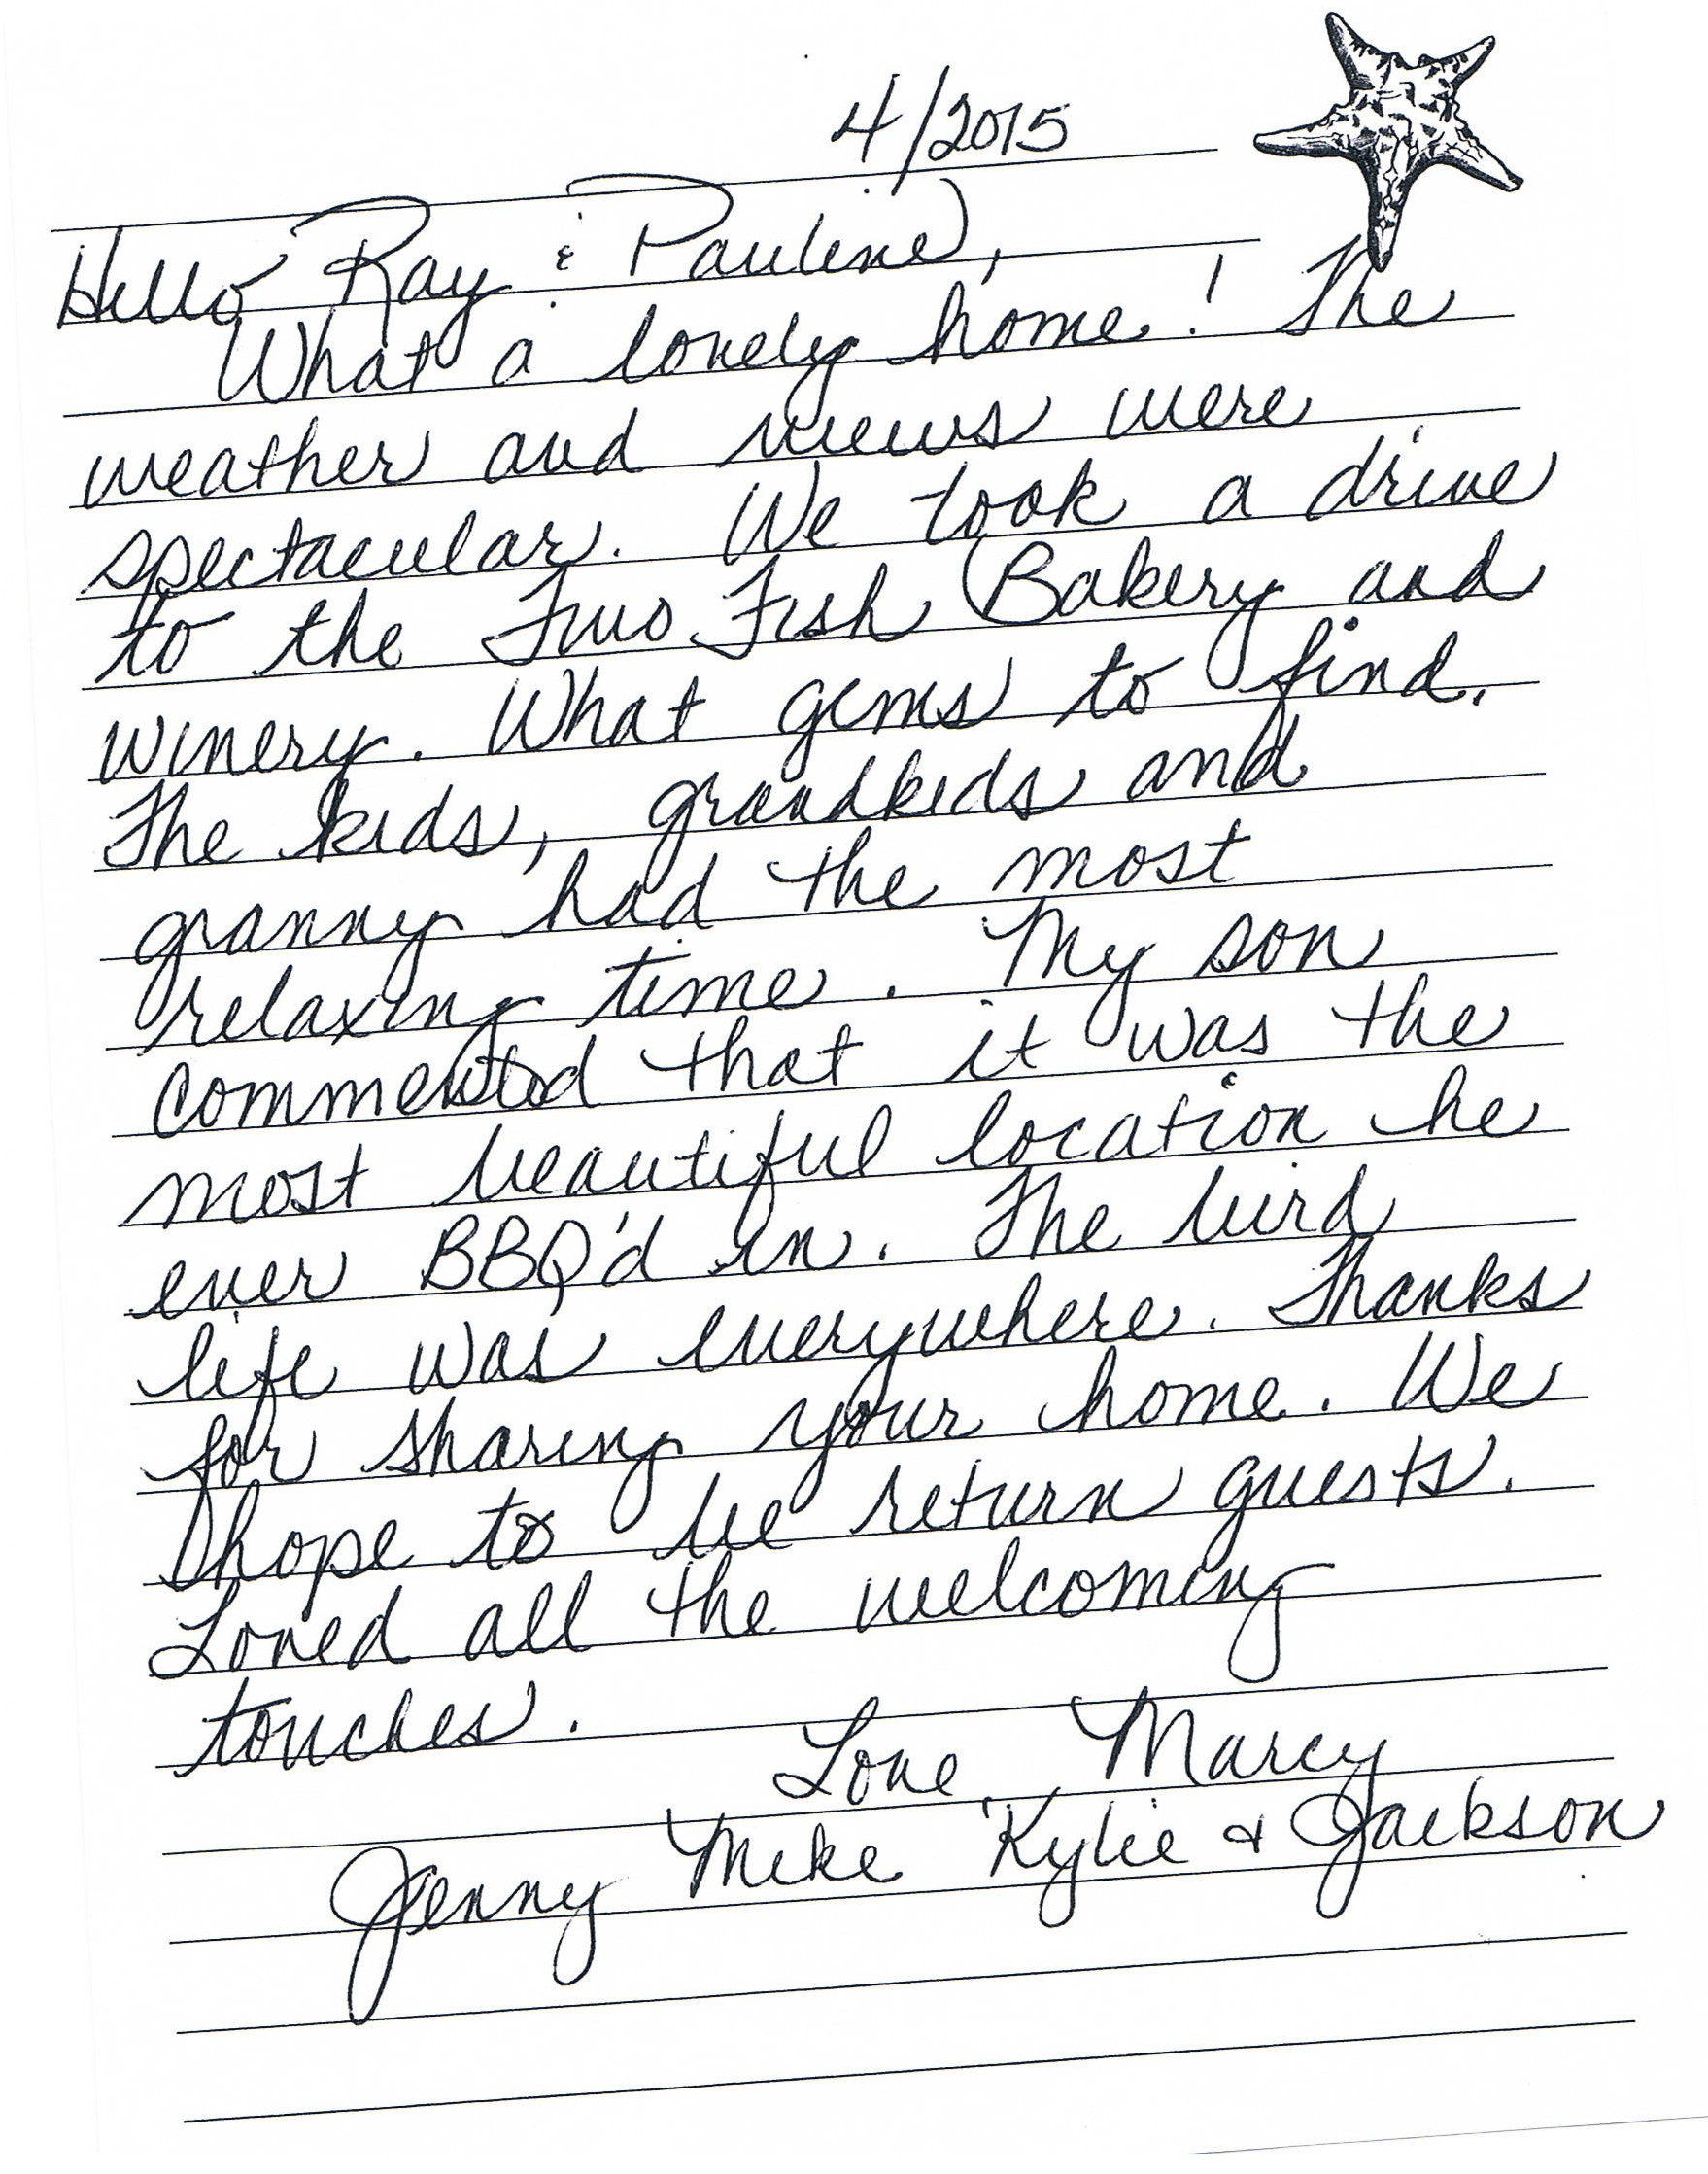 4/2015
Hello Ray & Pauline,
What a lovely home! The
weather and views were
spectacular. We took a drive
to the Two Fish Bakery and
winery. What gems to find.
The kids, grandkids and
granny had the most
relaxing time. My son
commented that it was the
most beautiful location he
ever BBQ'd in. The bird
life was everywhere. Thanks
for sharing your home. We
hope to be return guests.
Loved all the welcoming
touches.
Love Marcy
Jenny Mike Kylie & Jackson